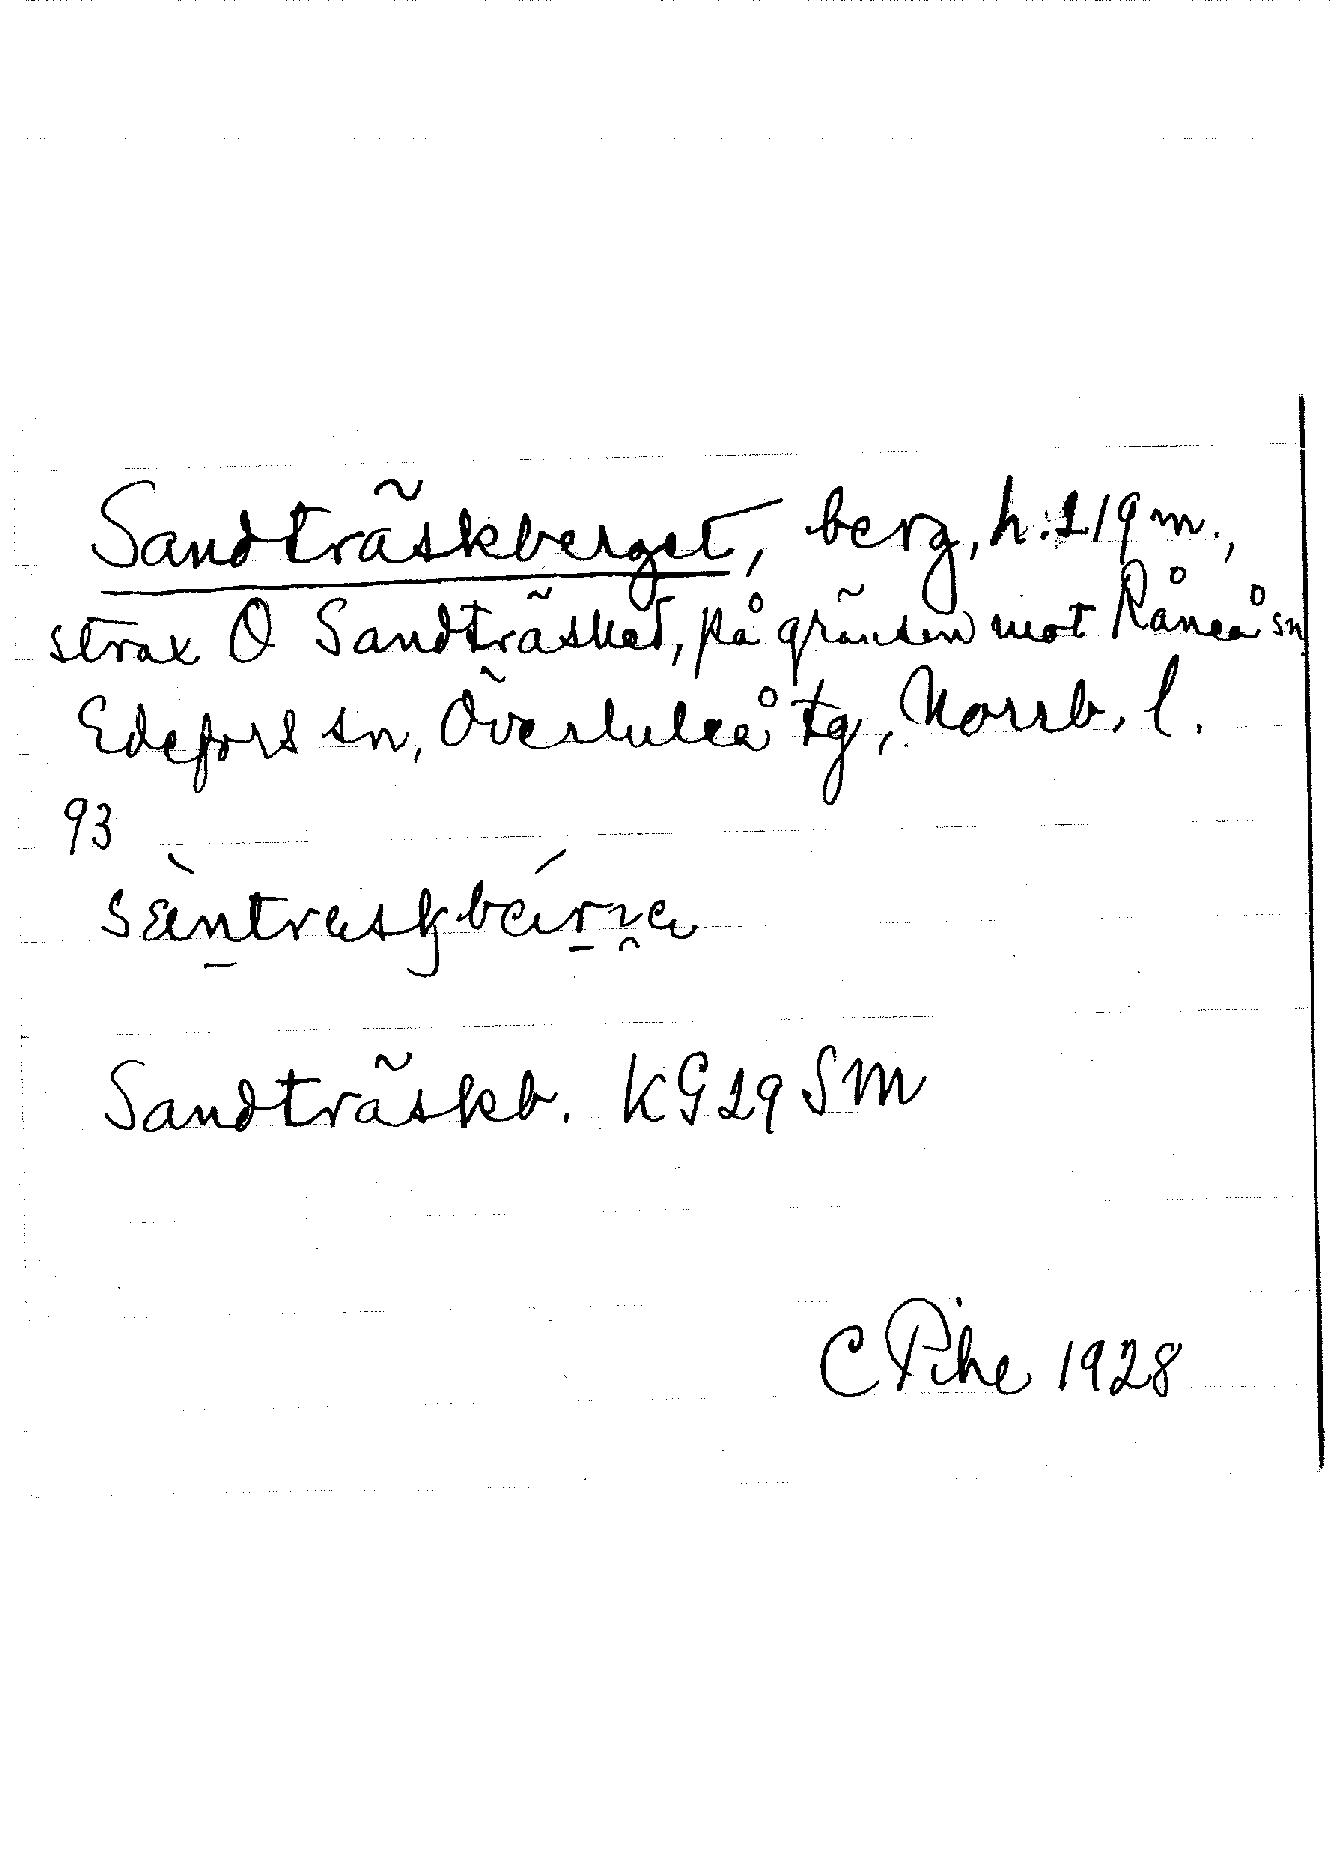 Sandträskberget, berg, h. 219 m.,
strax O Sandträsket, på gränsen mot Råneå sn
Edefors sn, Överluleå tg, Norrb. l.
93
Sandträskb. KG 29 SM
C Pihe 1928